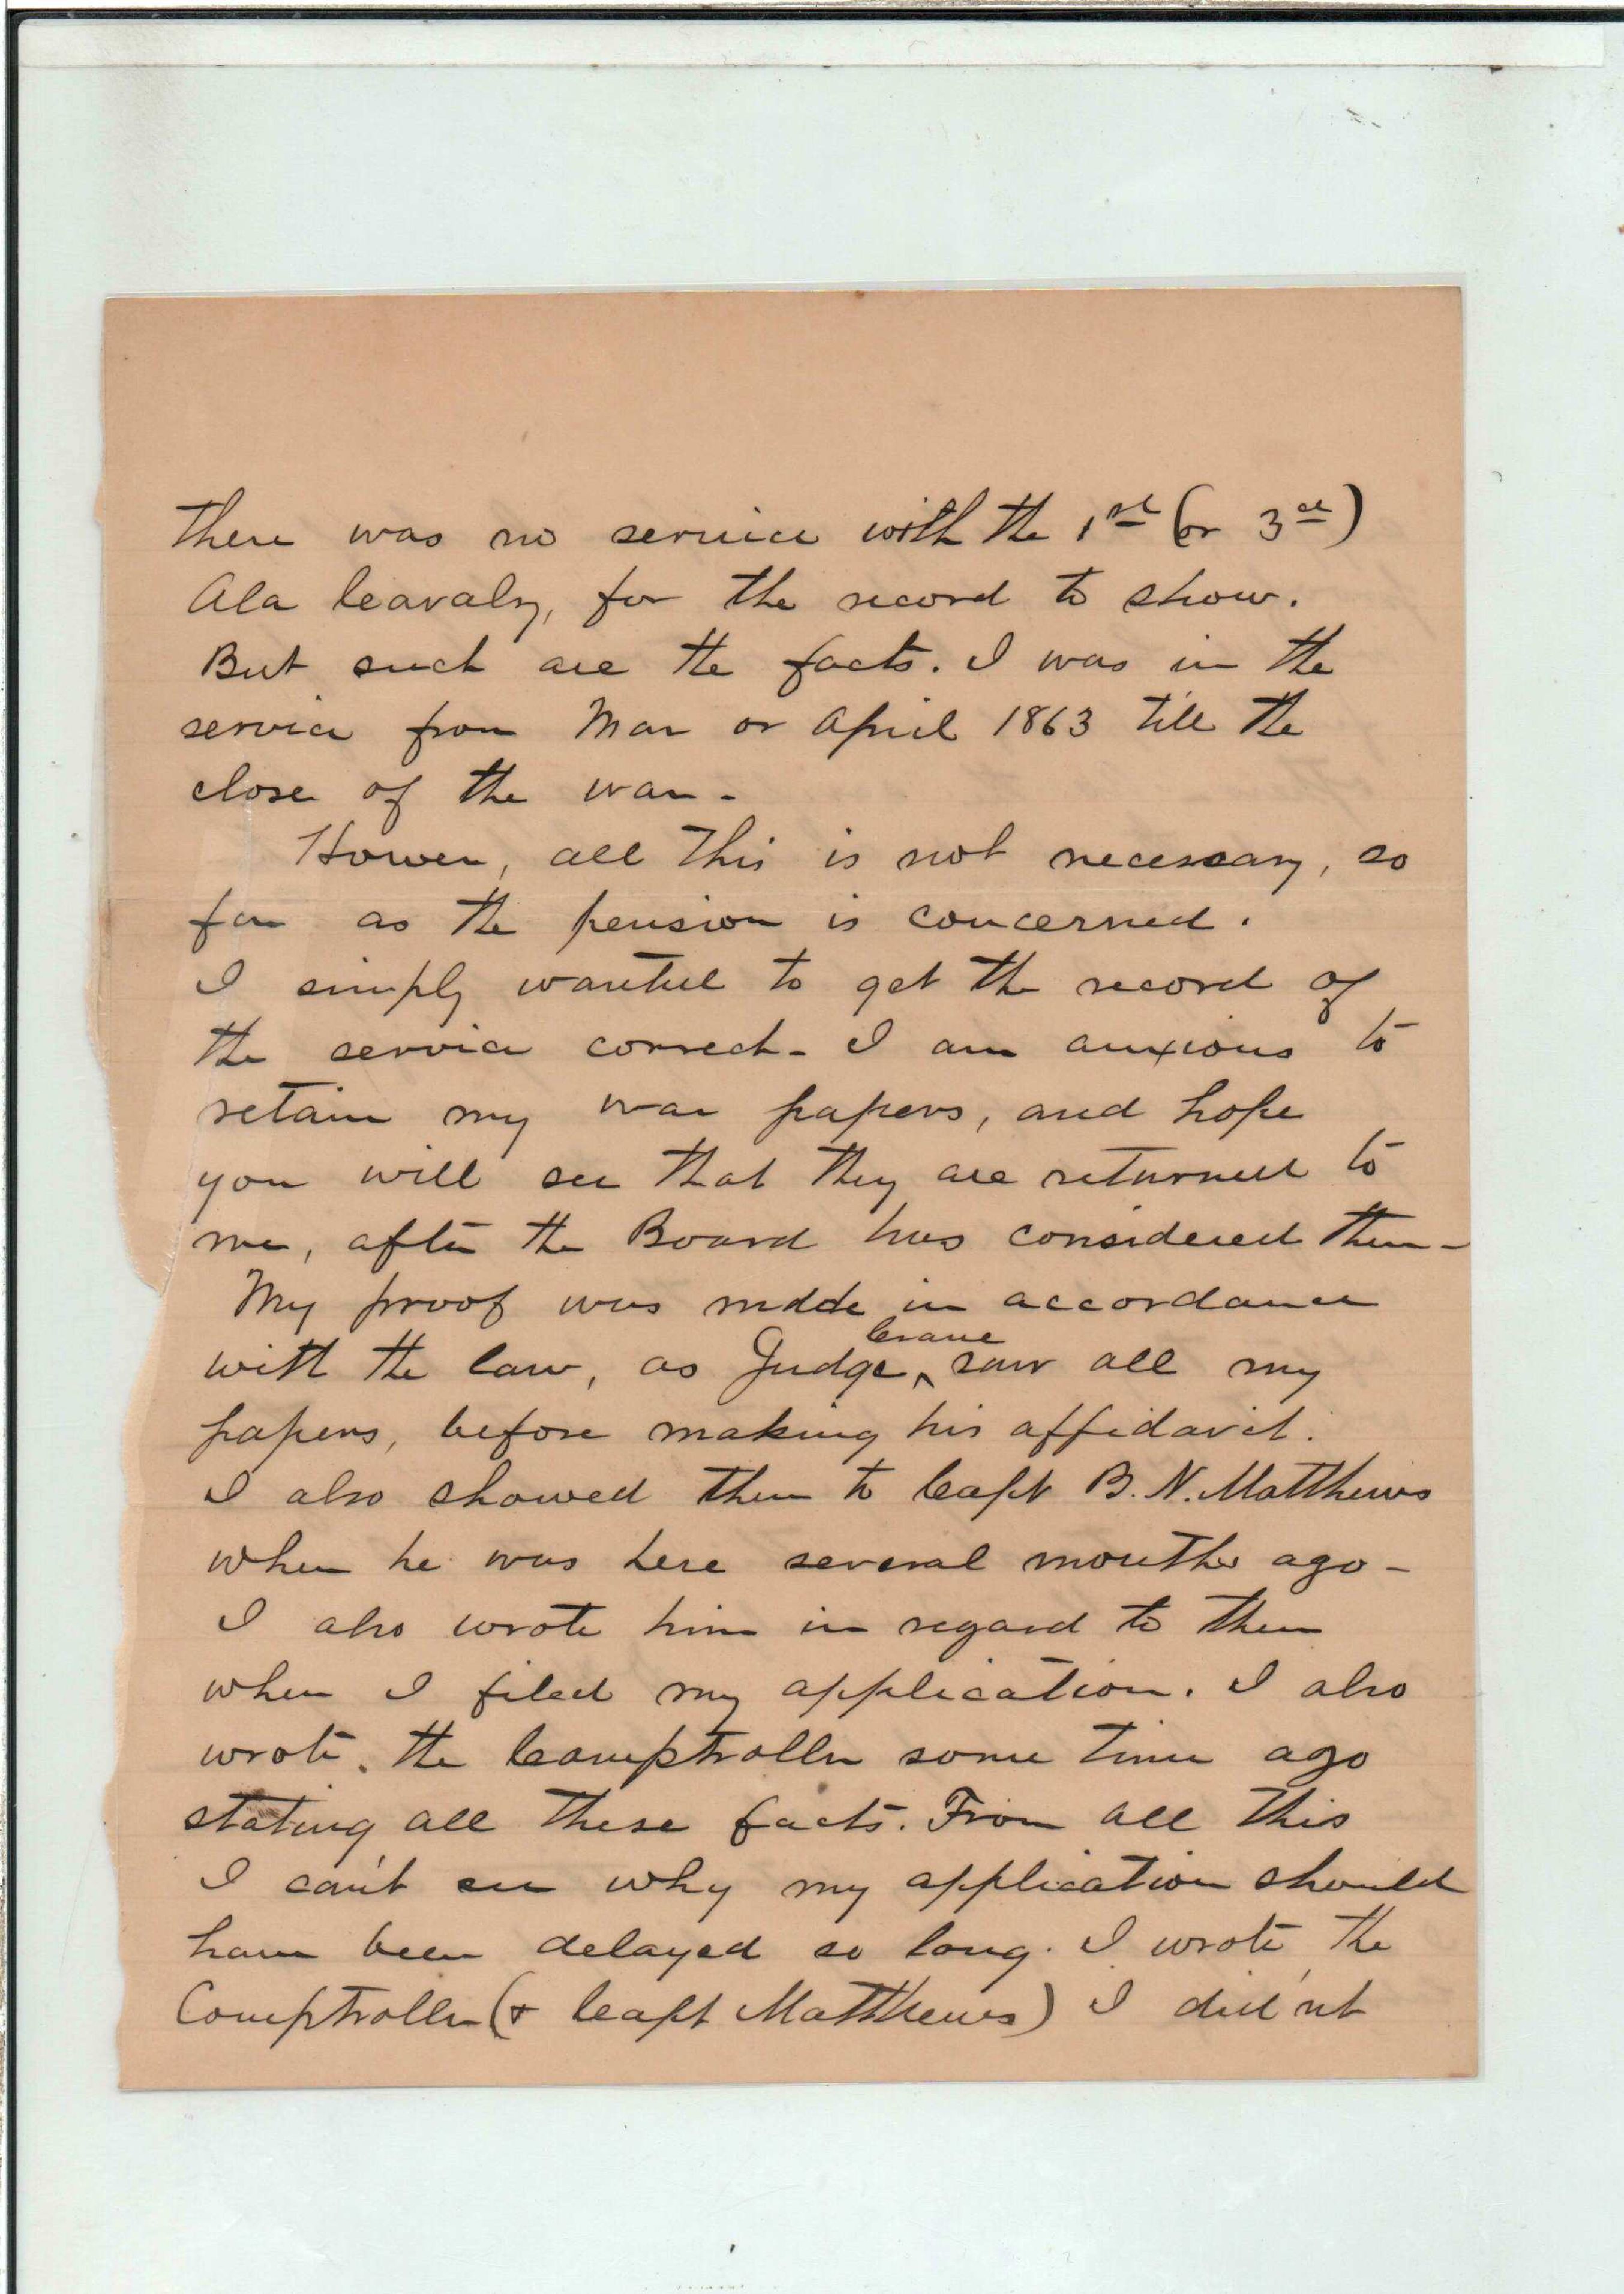 there was no service with the 1st (or 3rd)
Ala Cavalry, for the record to show.
But such are the facts. I was in the
service from Mar or April 1863 till the
close of the war -
Hower, all this is not necessary, so
far as the pension is concerned.
I simply wanted to get the record of
the service correct - I am anxious to
retain my war papers, and hope
you will see that they are returned to
me, after the Board has considered them -
My proof was made in accordance
Crane
with the law, as Judge ^ saw all my
papers, before making his affidavit.
I also showed them to Capt B. N. Matthews
when he was here several months ago -
I also wrote him in regard to them
when I filed my application. I also
wrote the Comptroller some time ago
stating all these facts. From all this
I can't see why my application should
have been delayed so long. I wrote the
Comptroller (& Capt Matthews) I did'nt